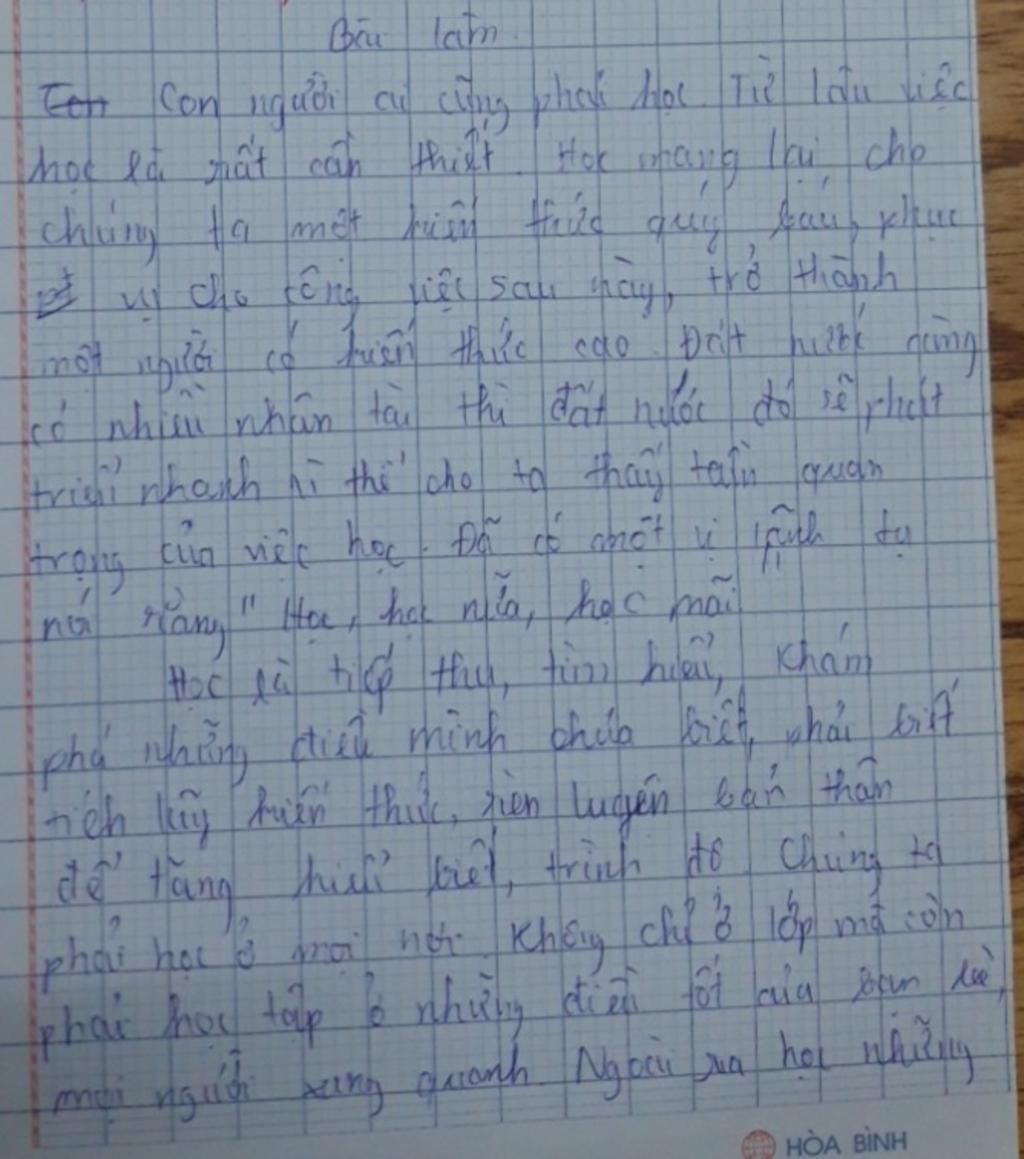 Bài làm
Con Con người ai cũng phải học. Từ lâu việc
học là rất cần thiết. Học mang lại cho
chúng ta một kiến thức quý báu, phục
vụ cho công việc sau này, trở thành
một người có kiến thức cao. Đất nước càng
có nhiều nhân tài thì đất nước đó sẽ phát
triển nhanh vì thế cho ta thấy tầm quan
trọng của việc học. Đã có một vị lãnh tụ
nói rằng " Học, học nữa, học mãi
Học là tiếp thu, tìm hiểu, khám
phá những điều mình chưa biết, phải biết
tích lũy kiến thức, rèn luyện bản thân
để tăng hiểu biết, trình độ. Chúng ta
phải học ở mọi nơi. Không chỉ ở lớp mà còn
phải học tập ở những điều tốt của bạn bè,
mọi người xung quanh. Ngoài ra học những
HÒA BÌNH